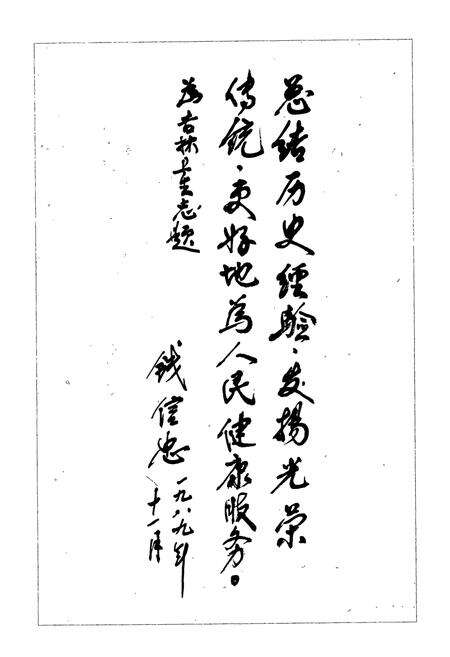 总结历史经验、发扬光荣
传统、更好地为人民健康服务。
为吉林卫生志题
钱信忠
一九八九年
十一月